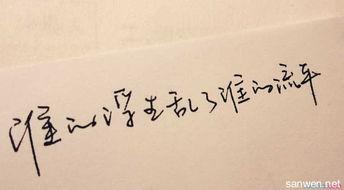 谁的浮生乱了谁的流年
sanwen.net